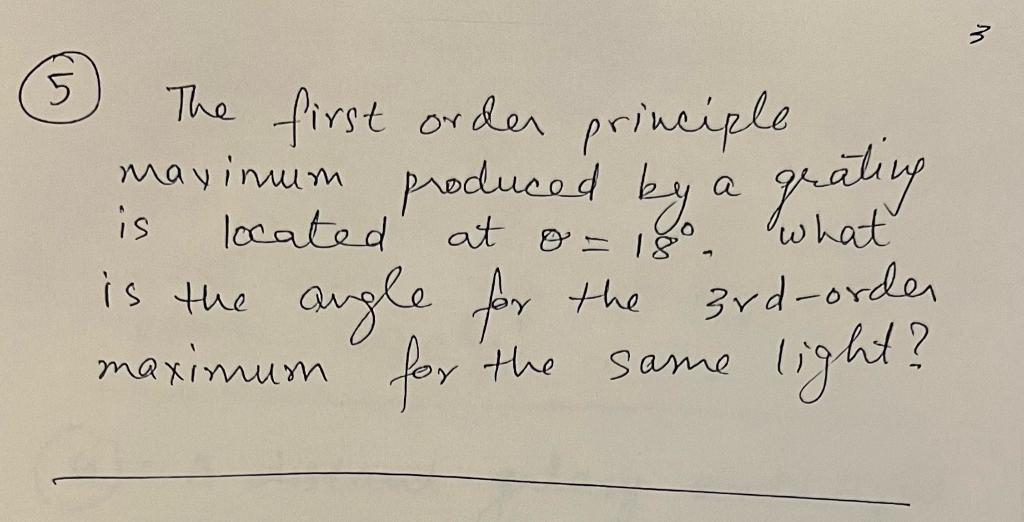 3
5 The first order principle
maximum produced by a grating
is located at θ = 18°. What
is the angle for the 3rd-order
maximum for the same light?